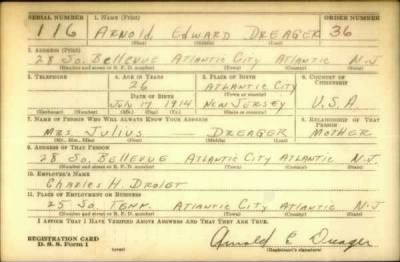 SERIAL NUMBER 1. NAME (Print) ORDER NUMBER
116 ARNOLD EDWARD DREAGER 36
(First) (Middle) (Last)
2. ADDRESS (Print)
28 So. Bellevue ATLANTIC CITY ATLANTIC N.J
(Number and street or R. F. D. number) (Town) (County) (State)
3. TELEPHONE 4. AGE IN YEARS 5. PLACE OF BIRTH 6. COUNTRY OF CITIZENSHIP
26 ATLANTIC CITY
(Town or county)
DATE OF BIRTH
17 1914 NEW JERSEY U.S.A
(Exchange) (Number) (Mo.) (Day) (Yr.) (State or country)
7. NAME OF PERSON WHO WILL ALWAYS KNOW YOUR ADDRESS 8. RELATIONSHIP OF THAT PERSON
MRS JULIUS DREAGER MOTHER
(Mr., Mrs., Miss) (First) (Middle) (Last)
9. ADDRESS OF THAT PERSON
28 So. Bellevue ATLANTIC CITY ATLANTIC N.J
(Number and street or R. F. D. number) (Town) (County) (State)
10. EMPLOYER'S NAME
Charles H.
11. PLACE OF EMPLOYMENT OR BUSINESS
25 So. Tenn. ATLANTIC CITY ATLANTIC N.J
(Number and street or R. F. D. number) (Town) (County) (State)
I AFFIRM THAT I HAVE VERIFIED ABOVE ANSWERS AND THAT THEY ARE TRUE.
REGISTRATION CARD
D. S. S. Form 1 Arnold E Dreager
(over) (Registrant's signature)